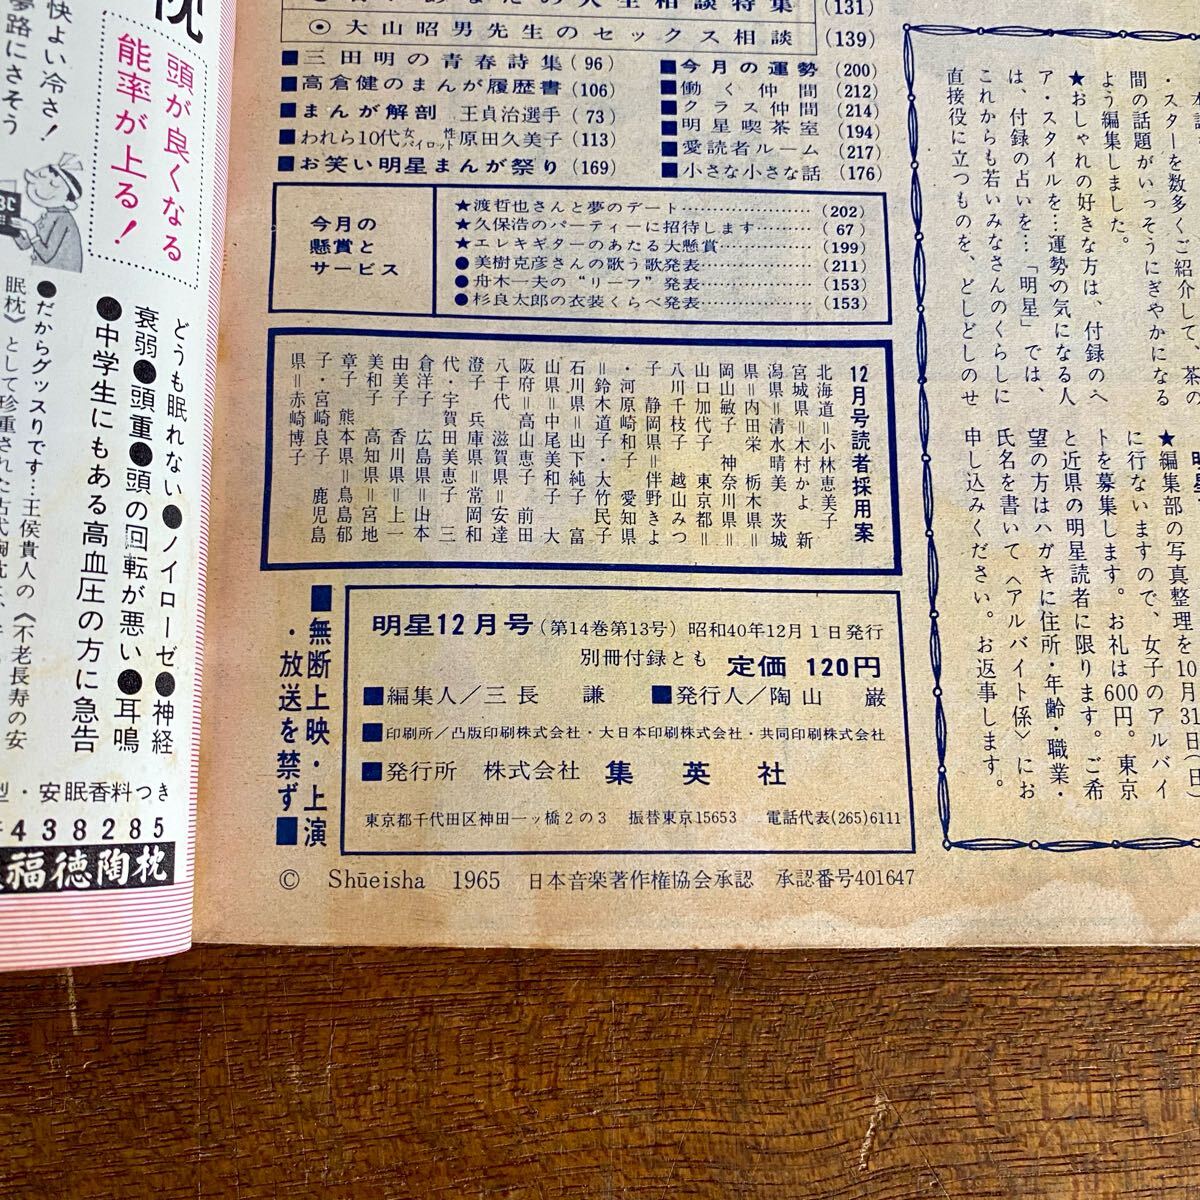 (131)
◉大山昭男先生のセックス相談 (139)
■三田明の青春詩集 (96)
■高倉健のまんが履歴書 (106)
■まんが解剖 王貞治選手 (73)
■われら10代女性パイロット 原田久美子 (113)
■お笑い明星まんが祭り (169)
■今月の運勢 (200)
■働く仲間 (212)
■クラス仲間 (214)
■明星喫茶室 (194)
■愛読者ルーム (217)
■小さな小さな話 (176)
今月の
懸賞と
サービス
★渡哲也さんと夢のデート (202)
★久保浩のパーティーに招待します (67)
★エレキギターのあたる大懸賞 (199)
●美樹克彦さんの歌う歌発表 (211)
●舟木一夫の“リーフ”発表 (153)
●杉良太郎の衣装くらべ発表 (153)
12月号読者採用案
北海道＝小林恵美子
宮城県＝木村かよ 新
潟県＝清水晴美 茨城
県＝内田栄 栃木県＝
岡山敏子 神奈川県＝
山口加代子 東京都＝
八川千枝子 越山みつ
子 静岡県＝伴野きよ
・河原崎和子 愛知県
＝鈴木道子・大竹民子
石川県＝山下純子 富
山県＝中尾美和子 大
阪府＝高山恵子 前田
八千代 滋賀県＝安達
澄子 兵庫県＝常岡和
代・宇賀田美恵子 三
倉洋子 広島県＝山本
由美子 香川県＝上一
美和子 高知県＝宮地
章子 熊本県＝鳥島郁
子・宮崎良子 鹿児島
県＝赤崎博子
■無断上映・上演
・放送を禁ず■
明星12月号（第14巻第13号）昭和40年12月1日発行
別冊付録とも 定価 120円
■編集人／三長 謙 ■発行人／陶山 巌
■印刷所／凸版印刷株式会社・大日本印刷株式会社・共同印刷株式会社
■発行所 株式会社 集英社
東京都千代田区神田一ッ橋2の3 振替東京15653 電話代表(265)6111
© Shūeisha 1965 日本音楽著作権協会承認 承認番号401647
・スターを数多くご紹介して、茶の
間の話題がいっそうにぎやかになる
よう編集しました。
★おしゃれの好きな方は、付録のヘ
ア・スタイルを…運勢の気になる人
は、付録の占いを…「明星」では、
これからも若いみなさんのくらしに
直接役に立つものを、どしどしのせ
★編集部の写真整理を10月31日(日)
に行ないますので、女子のアルバイ
トを募集します。お礼は600円。東京
と近県の明星読者に限ります。ご希
望の方はハガキに住所・年齢・職業・
氏名を書いて〈アルバイト係〉にお
申し込みください。お返事します。
枕
頭が良くなる
能率が上る！
快よい冷さ！
夢路にさそう
どうも眠れない●ノイローゼ●神経
衰弱●頭重●頭の回転が悪い●耳鳴
●中学生にもある高血圧の方に急告
●だからグッスリです…王侯貴人の《不老長寿の安
眠枕》として珍重された古代陶枕
型・安眠香料つき
438285
福徳陶枕